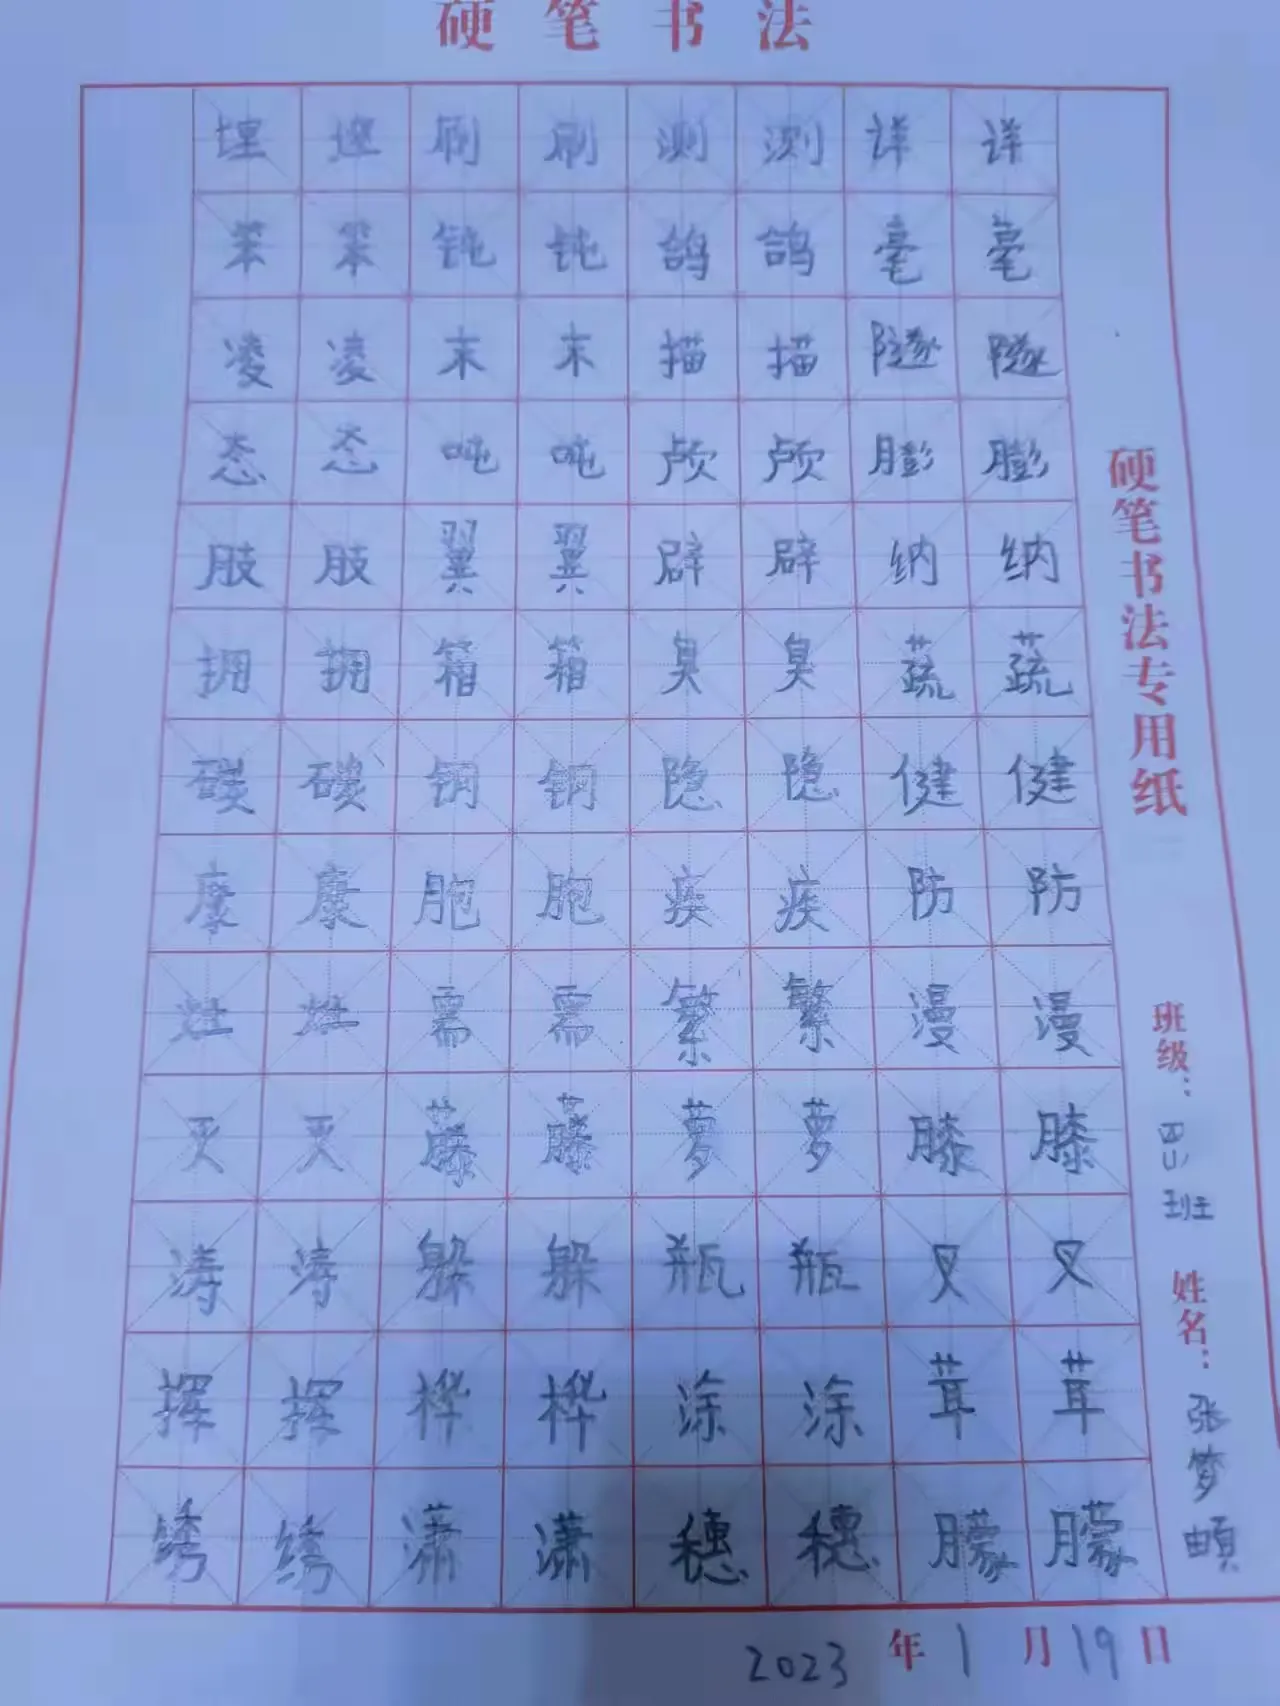 硬笔书法
埋 埋 刷 刷 测 测 详 详
笨 笨 钝 钝 鸽 鸽 毫 毫
凌 凌 末 末 描 描 隧 隧
态 态 吨 吨 颅 颅 膨 膨
肢 肢 翼 翼 辟 辟 纳 纳
拥 拥 箱 箱 臭 臭 蔬 蔬
碳 碳 钢 钢 隐 隐 健 健
康 康 胞 胞 疾 疾 防 防
灶 灶 需 需 繁 繁 漫 漫
灭 灭 藤 藤 萝 萝 膝 膝
涛 涛 躲 躲 瓶 瓶 叉 叉
挥 挥 桦 桦 涂 涂 茸 茸
绣 绣 潇 潇 穗 穗 朦 朦
硬笔书法专用纸
班级：四1班 姓名：张梦
2023年1月19日